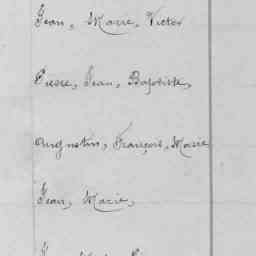 Jean, Marie, Victor
Pierre, Jean, Baptiste,
Augustin, François, Marie
Jean, Marie,